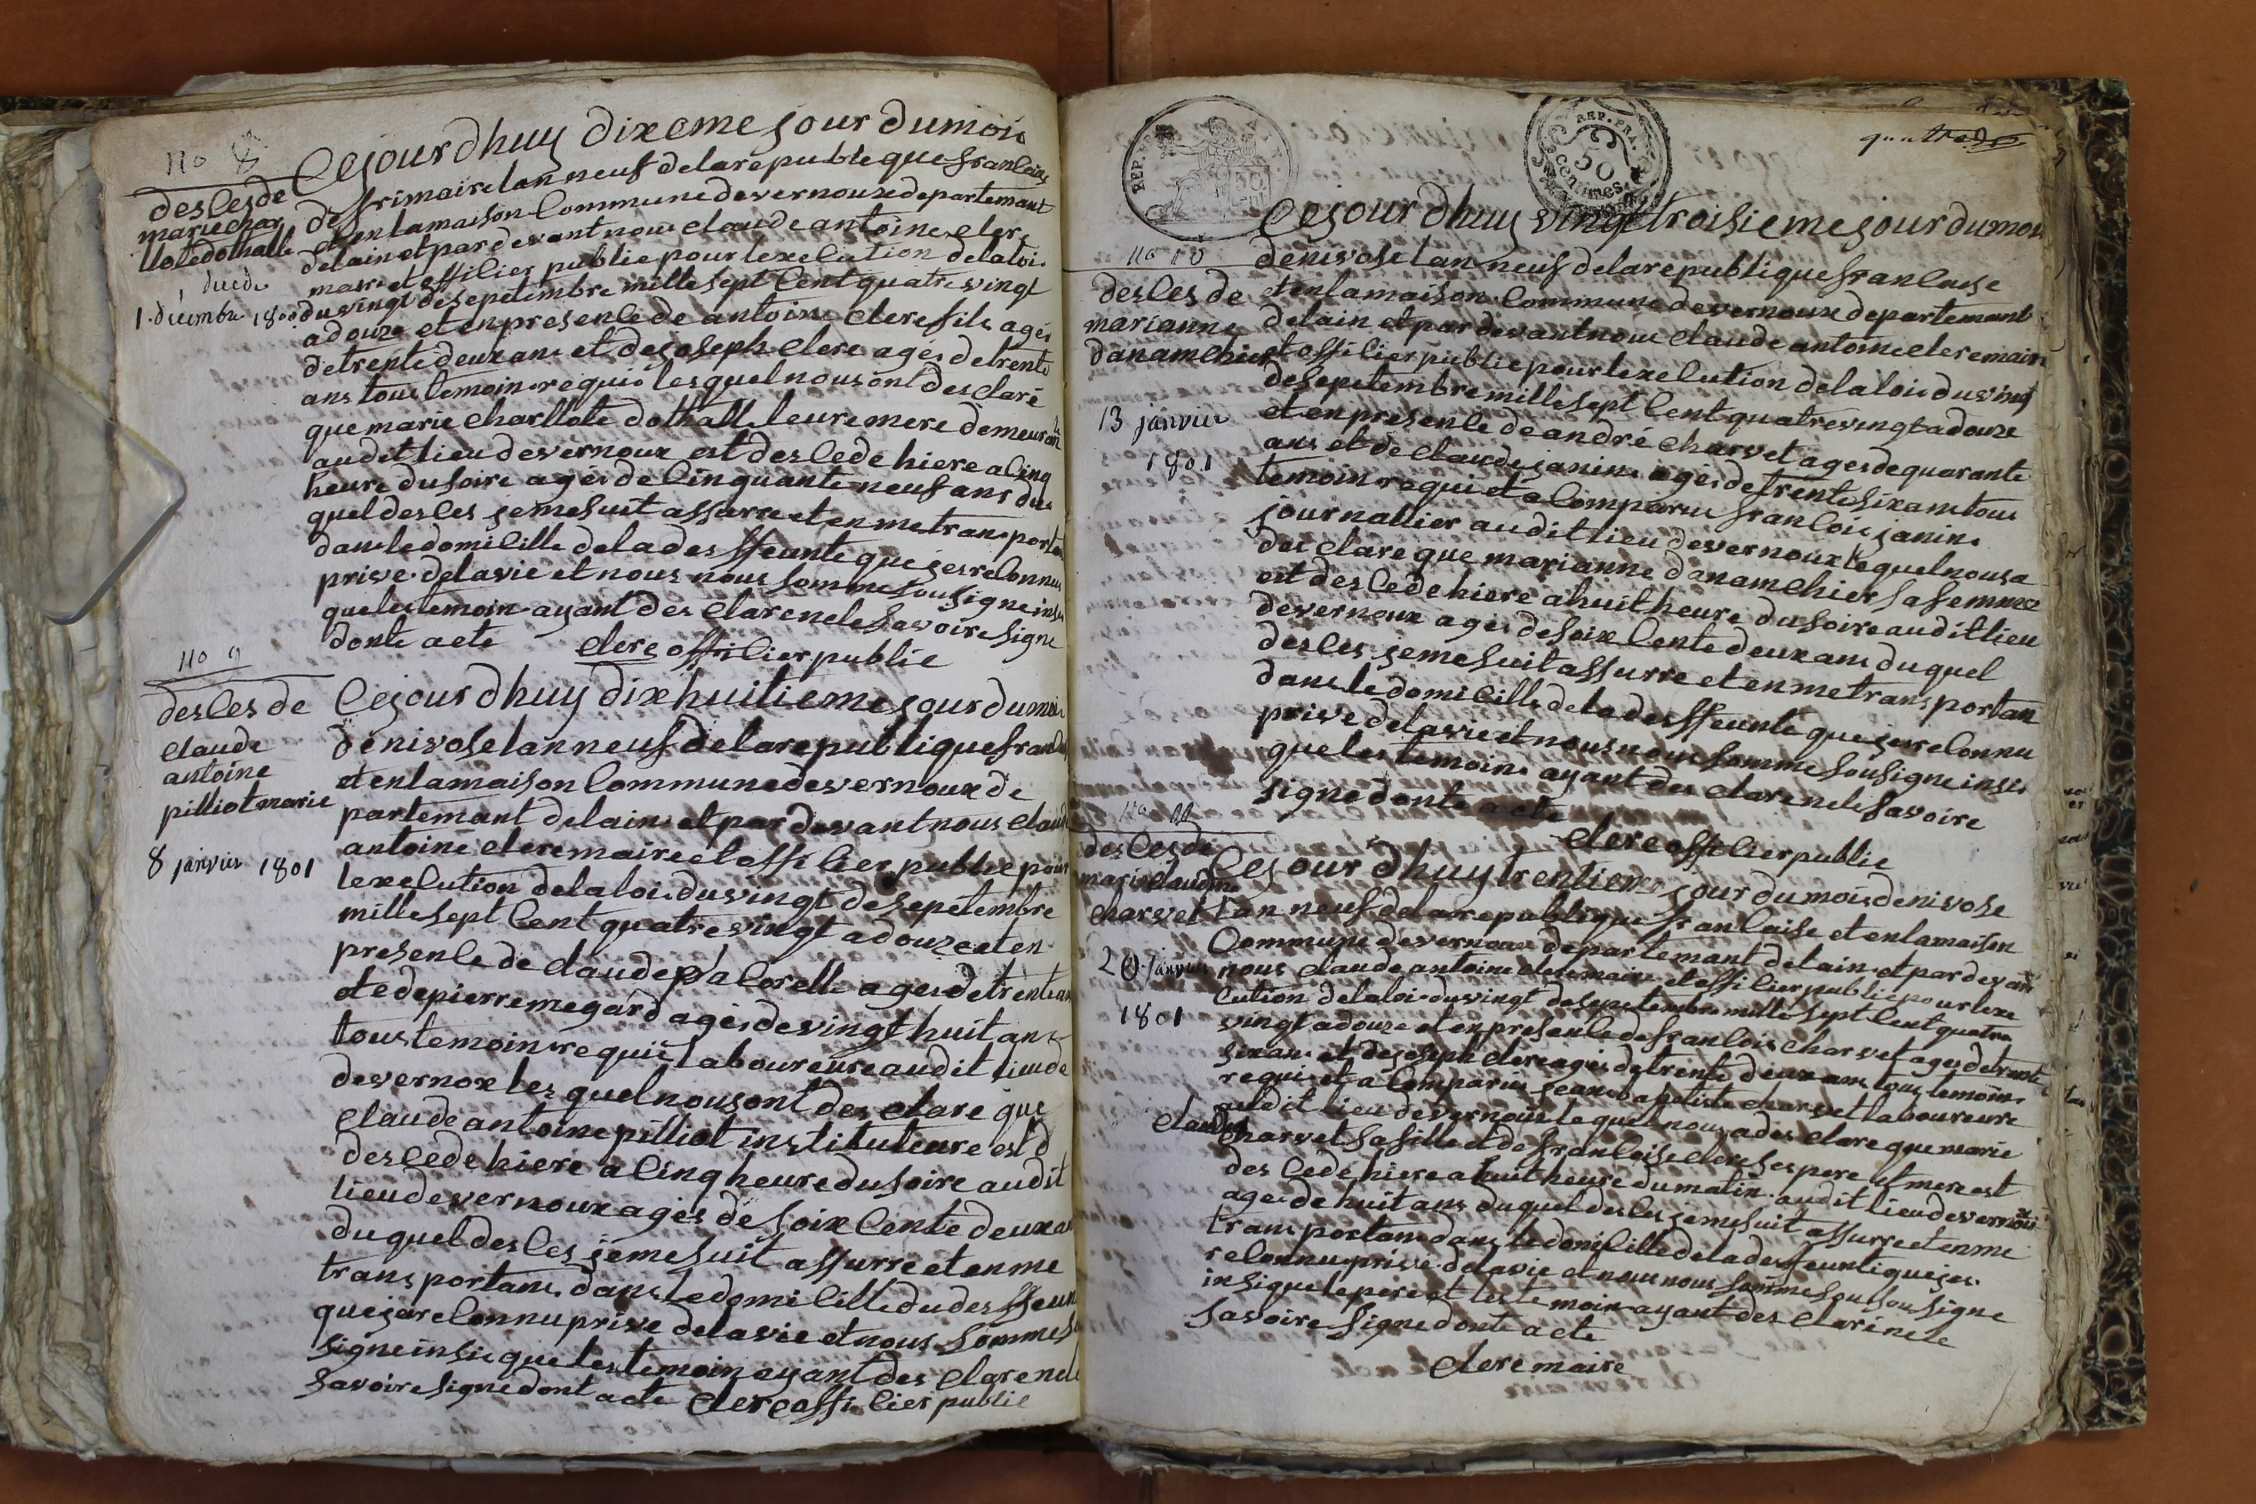 no 8
desces de
marie char
llote dothalle
ducdu
1. décembre 1800
Cejourdhuy dixeme jour du mois
de frimaire lan neuf de la republeque francaise
et en la maison Commune de vernoux departemant
delain et par devant nous claude antoine clerc
maire et officier public pour lexecution de la loi
du vingt de sepetembre mille sept Cent quatre vingt
a douze et en presence de antoine clerc fils ages
de trente deux ans et de joseph clerc ages de trente
ans tous temoins requis lesquel nous ont desclaré
que marie charllote dothalle leure mere demeurant
audit lieu de vernoux est descede hiere a Cinq
heure du soire agés de Cinquante neuf ans du
quel desces je me suit assurre et en me transportan
dans le domicille de la desffeunte que jes reConnus
prive de la vie et nous nous somme sousigne insi
que les temoin ayant des clare ne le savoire signe
donte acte clerc officier public
no 9
desces de
claude
antoine
pilliot marie
8 janvier 1801
Cejourdhuy dixhuitieme jour du mois
de nivose lan neuf de la republique francaise
et en la maison Commune de vernoux de
partemant delain et par devant nous claude
antoine clerc maire et officier public pour
lexecution de la loi du vingt de sepetembre
mille sept Cent quatre vingt a douze et en
presence de claude paCorelle ages de trente ans
et de pierre megard ages de vingt huit ans
tous temoins requis laboureure audit lieu de
de vernox les quel nous ont des clare que
claude antoine pilliot instituteure est d
descede hiere a Cinq heure du soire audit
lieu de vernoux ages de soix Cente deux ans
du quel desces je me suit assurre et en me
transportans dans le domicille du desffeunt
que jai reConnu prive de la vie et nous somme sou
signe insi que les temoin ayant des clare ne le
savoire signe dont acte clerc officier public
REP. FRA.
50
centimes
quatre
no 10
desces de
marianne
danamchier
13 janvier
1801
Cejourdhuy vingt troisieme jour du mois
de nivose lan neuf de la republique francaise
et en la maison Commune de vernoux departemant
delain et par devant nous claude antoine clerc maire
et officier public pour lexecution de la loi du vingt
de sepetembre mille sept Cent quatre vingt a douze
et en presence de andré charvet ages de quarante
ans et de claude janin ages de trente six ans tous
temoin requi et a Comparu francois janin
journallier audit lieu de vernoux le quel nous a
des clare que marianne danamchier sa femme
est descede hiere a huit heure du soire audit lieu
de vernoux ages de soix Cente deux ans du quel
desces je me suit assurre et en me transportan
dans le domicille de la desffeunte que jai reConnu
prive de la vie et nous nous somme sousigne insi
que les temoins ayant des clare ne le savoire
signe donte acte
clerc officier public
no 11
desces de
marie claudine
charvet
20 janvier
1801
Cejourdhuy trentieme jour du mois de nivose
lan neuf de la republique francaise et en la maison
Commune de vernoux departemant delain et par devan
nous claude antoine clerc maire et officier public pour lexe
cution de la loi du vingt de sepetembre mille sept Cent quatre
vingt a douze et en presence de francois charvet ages de trente
six ans et de joseph clerc ages de trente deux ans tous temoin
requi et a Comparus jean bapetiste charvet laboureure
audit lieu de vernoux le quel nous a des clare que marie
claudine
charvet sa fille et de francoise clerc ses pere et mere est
des cede hiere a huit heure du matin audit lieu de vernoux
ages de huit ans du quel desces je me suit assurre et en me
transportans dans le domicille de la desffeunte que jes
reConnu prive de la vie et nous nous somme sou sousigne
insi que le pere et les temoin ayant des clare ne le
savoire signe donte acte
clerc maire